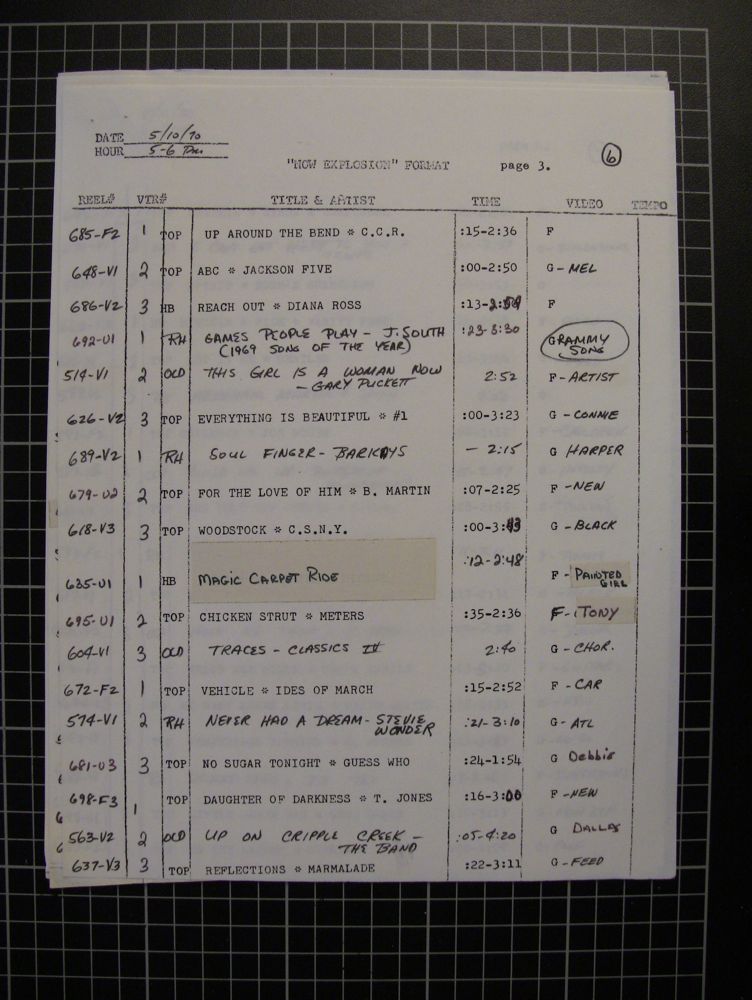 DATE 5/10/70
HOUR 5-6 PM
"NOW EXPLOSION" FORMAT page 3. 6
REEL# VTR# TITLE & ARTIST TIME VIDEO TEMPO
685-F2 1 TOP UP AROUND THE BEND * C.C.R. :15-2:36 F
648-V1 2 TOP ABC * JACKSON FIVE :00-2:50 G - MEL
686-V2 3 HB REACH OUT * DIANA ROSS :13- F
692-U1 1 RH GAMES PEOPLE PLAY - J. SOUTH :23-3:30 GRAMMY
(1969 SONG OF THE YEAR) SONG
514-V1 2 OLD THIS GIRL IS A WOMAN NOW 2:52 F - ARTIST
- GARY PUCKETT
626-V2 3 TOP EVERYTHING IS BEAUTIFUL * #1 :00-3:23 G - CONNIE
689-V2 1 RH SOUL FINGER - BARKAYS - 2:15 G HARPER
679-U2 2 TOP FOR THE LOVE OF HIM * B. MARTIN :07-2:25 F - NEW
618-V3 3 TOP WOODSTOCK * C.S.N.Y. :00-3:43 G - BLACK
635-U1 1 HB MAGIC CARPET RIDE :12-2:48 F - PAINTED
GIRL
695-U1 2 TOP CHICKEN STRUT * METERS :35-2:36 F - TONY
604-V1 3 OLD TRACES - CLASSICS IV 2:40 G - CHOR.
672-F2 1 TOP VEHICLE * IDES OF MARCH :15-2:52 F - CAR
574-V1 2 RH NEVER HAD A DREAM - STEVIE :21-3:10 G - ATL
WONDER
681-U3 3 TOP NO SUGAR TONIGHT * GUESS WHO :24-1:54 G Debbie
698-F3 1 TOP DAUGHTER OF DARKNESS * T. JONES :16-3:00 F - NEW
563-V2 2 OLD UP ON CRIPPLE CREEK - :05-4:20 G DALLAS
THE BAND
637-V3 3 TOP REFLECTIONS * MARMALADE :22-3:11 G - FEED